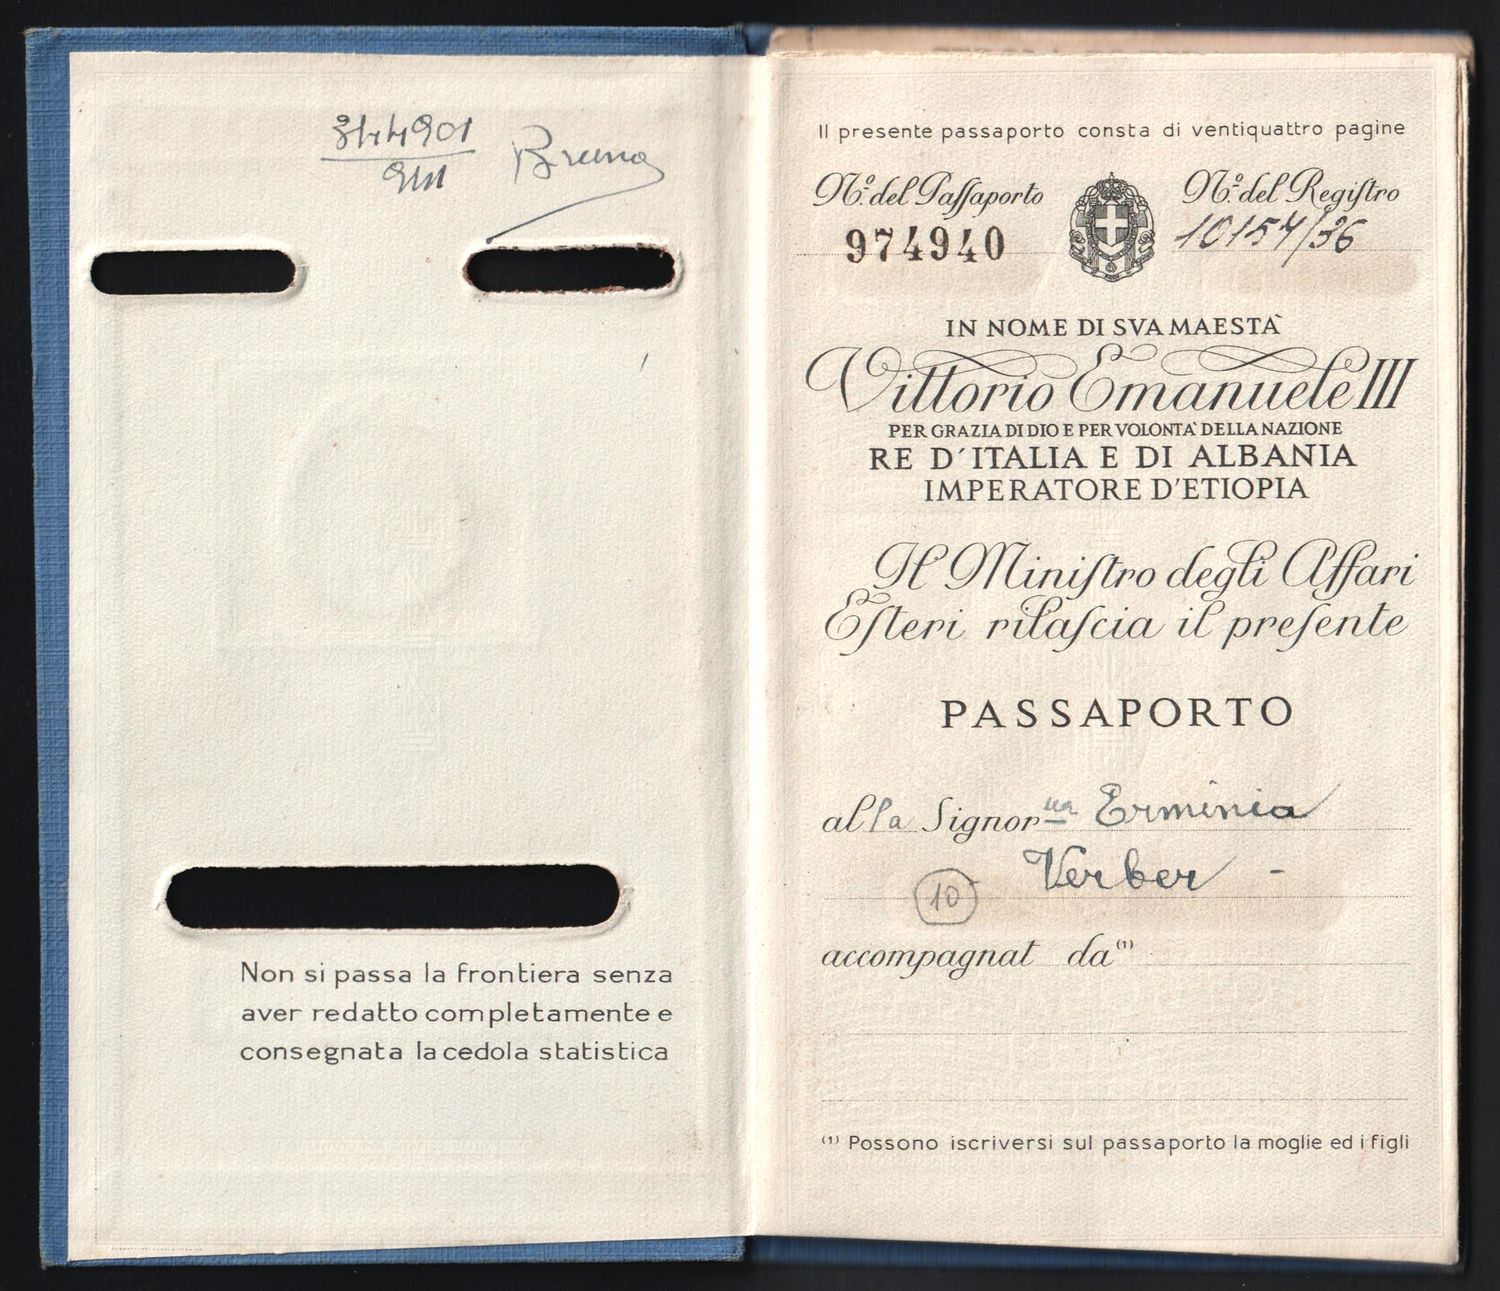 3144901
911
Bruna
Non si passa la frontiera senza
aver redatto completamente e
consegnata la cedola statistica
Il presente passaporto consta di ventiquattro pagine
N.º del Passaporto
N.º del Registro
974940
10154/36
IN NOME DI SVA MAESTÀ
Vittorio Emanuele III
PER GRAZIA DI DIO E PER VOLONTÀ DELLA NAZIONE
RE D'ITALIA E DI ALBANIA
IMPERATORE D'ETIOPIA
Il Ministro degli Affari
Esteri rilascia il presente
PASSAPORTO
alla Signorina Erminia
Verber -
10
accompagnat da (1)
(1) Possono iscriversi sul passaporto la moglie ed i figli